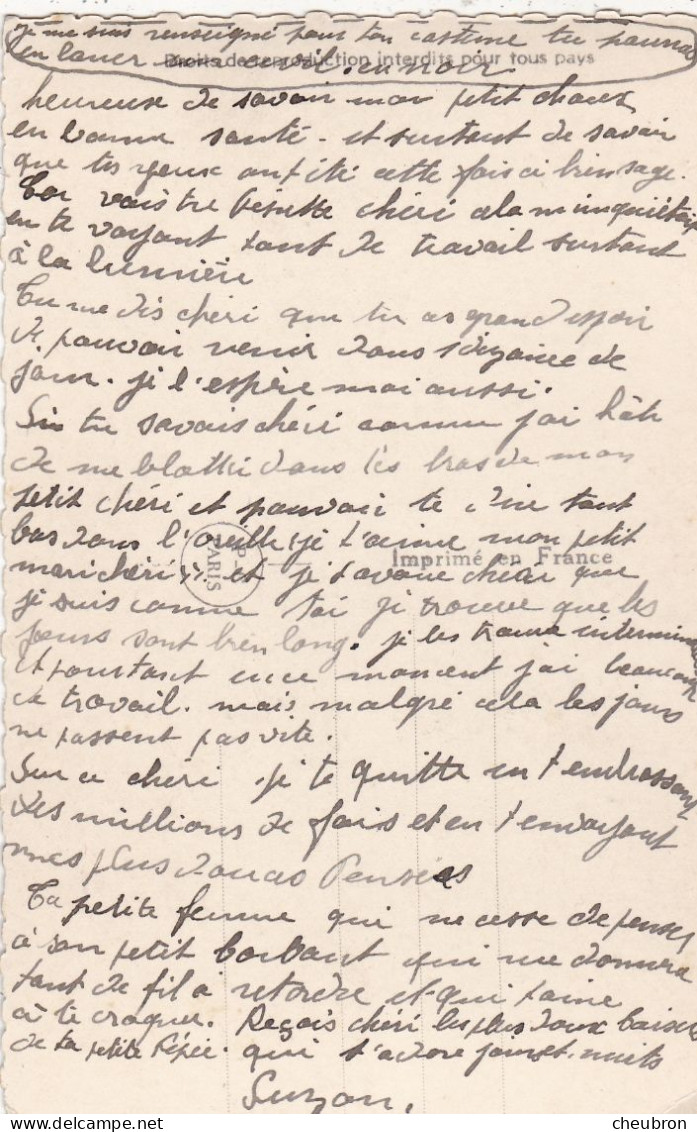 je me suis renseigné pour ton costume tu pourras
en louer un civil. en noir
Droits de reproduction interdits pour tous pays
heureuse de savoir mon petit choux
en bonne santé - et surtout de savoir
que tes yeux ont été cette fois ci bien sage.
Car vois tre chéri cela m'inquiétait
en te voyant tant de travail surtout
à la lumière
Tu me dis chéri que tu as grand espoir
de pouvoir venir dans 1 dizaine de
jour. je l'espère moi aussi.
Si tu savais chéri comme j'ai hâte
de me blottir dans les bras de mon
petit chéri et pouvoir te dire tout
bas dans l'oreille (je t'aime mon petit
mari chéri) et je t'avoue cheri que
PARIS
Imprimé en France
je suis comme toi je trouve que les
jours sont bien long. je les trouve interminable
et pourtant en ce moment j'ai beaucoup
de travail. mais malgré cela les jours
ne passent pas vite.
Sur ce chéri je te quitte en t'embrassant
des millions de fois et en t'envoyant
mes plus douces Pensées
Ta petite femme qui ne cesse de penser
à son petit qui me donnera
tant de fil à retordre et qui t'aime
à te croquer. Reçois chéri les plus doux baisers
de ta petite Pépée. qui t'adore jours et nuits
Suzon.
cheubron